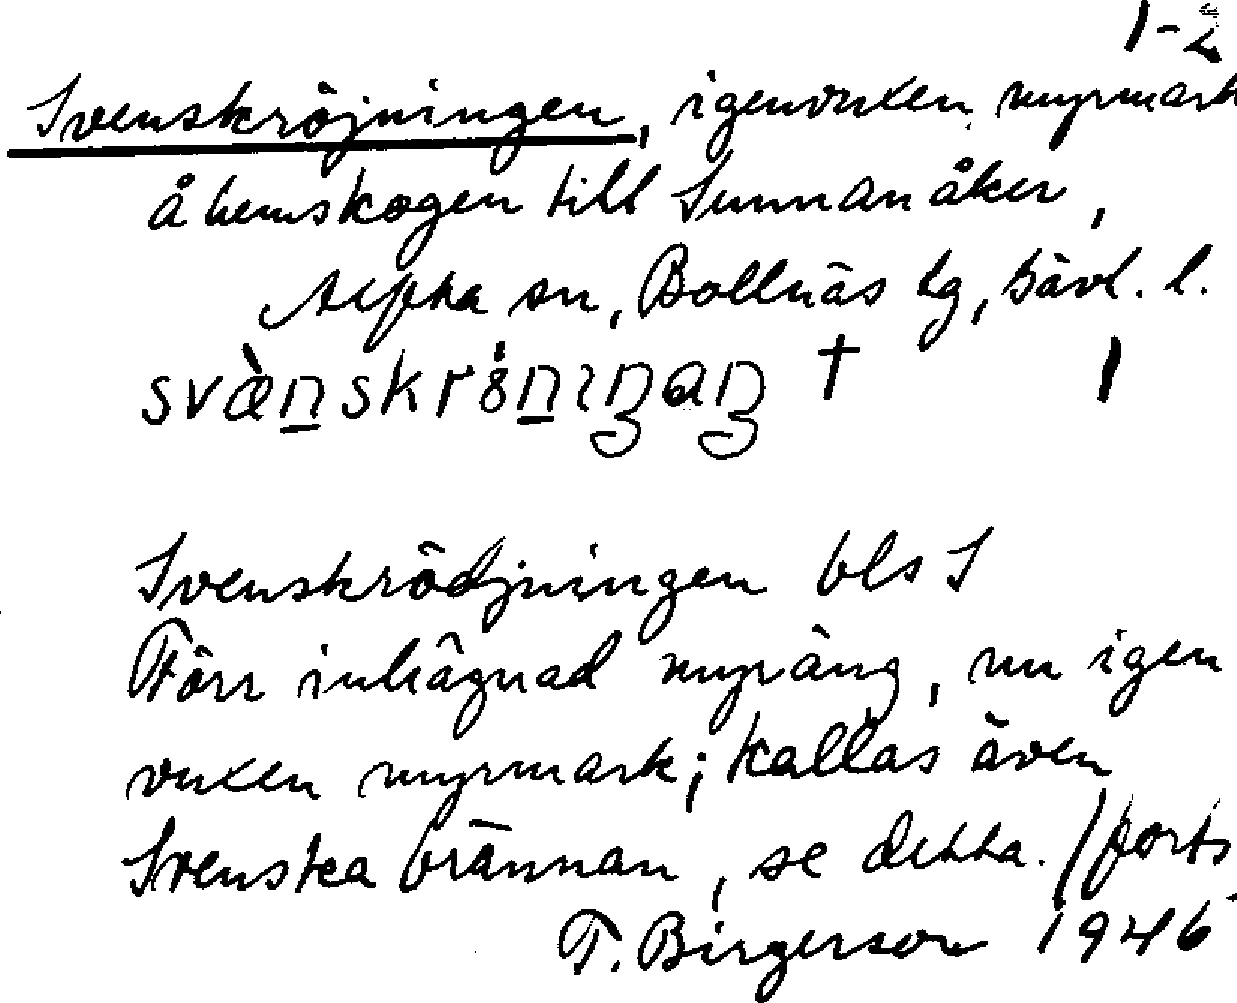 1-2
Svenskröjningen, igenvuxen myrmark
å hemskogen till Sunnanåker,
Alfta sn, Bollnäs tg, Gävl. l.
svæ̀n̲skrön̲ıŋaŋ † 1
Svenskrödjningen bls S
Förr inhägnad myräng, nu igen
vuxen myrmark; kallas även
Svenska brännan, se detta. /forts
T. Birgerson 1946